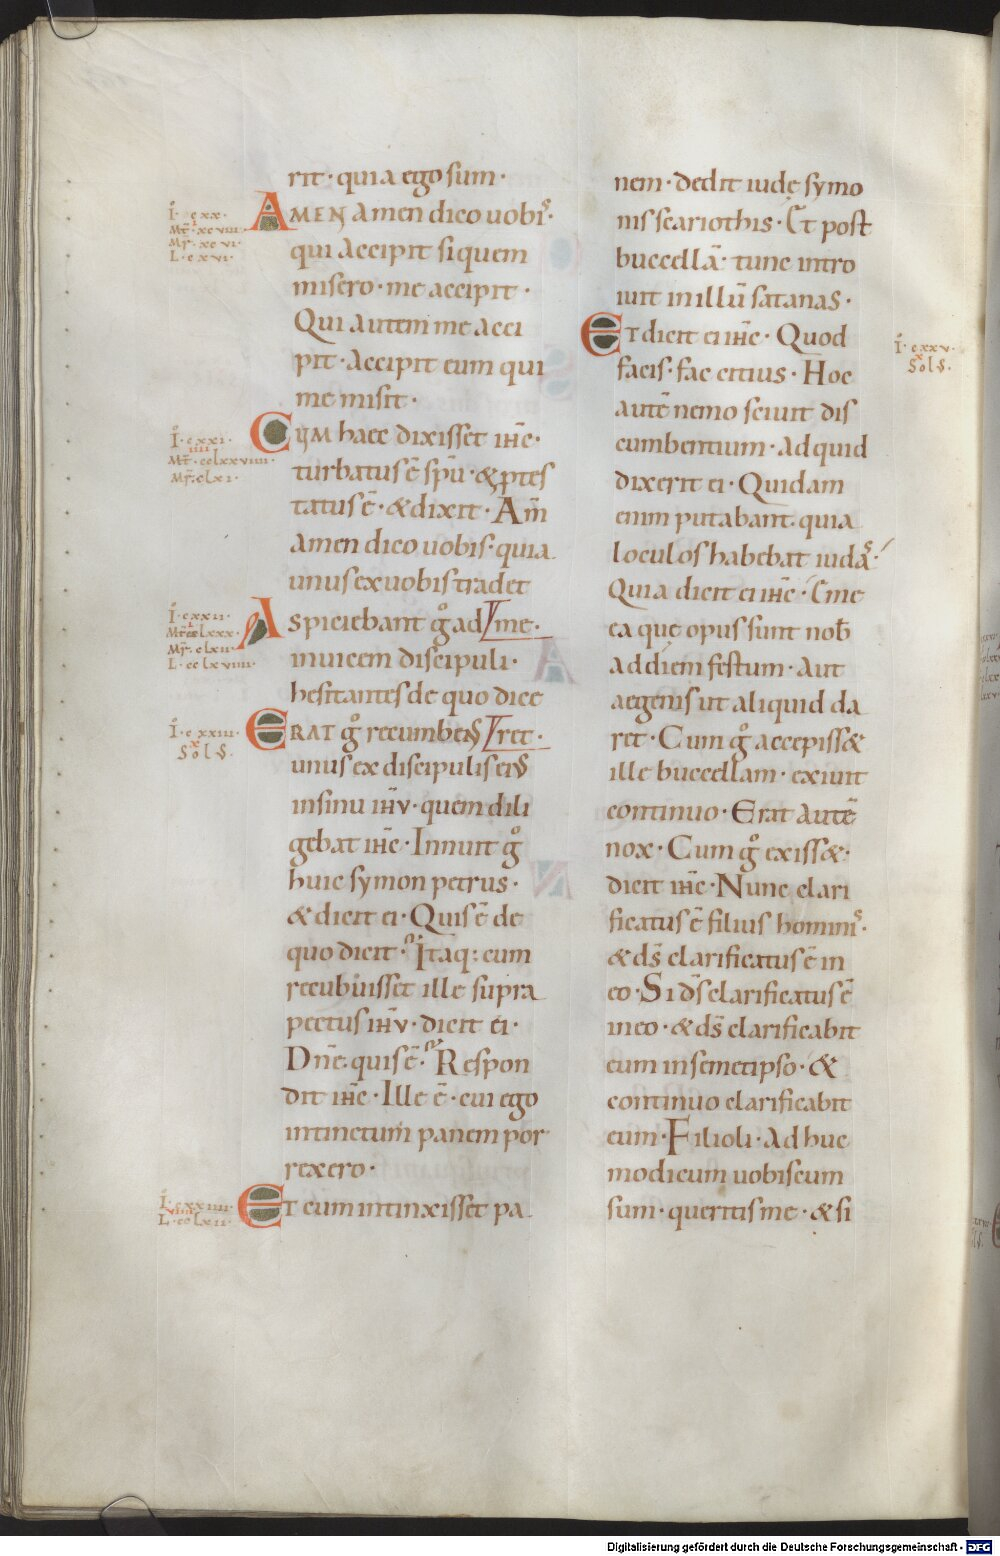 rit · quia ego sum ·
AMEN amen dico uobis ·
qui accipit siquem
misero · me accipit ·
Qui autem me acci
pit · accipit eum qui
me misit ·
CUM haec dixisset ihc ·
turbatus ē spū · & ptes
tatus ē · & dixit · Am̄
amen dico uobis · quia
unus ex uobis tradet
Aspiciebant g° ad me ·
inuicem discipuli ·
hesitantes de quo dice
ERAT g° recumbens ret ·
unus ex discipulis eius
in sinu ihū · quem dili
gebat ihc · Innuit g°
huic symon petrus ·
& dicit ei · Quis ē de
quo dicit · Itaq: cum
recubuisset ille supra
pectus ihū · dicit ei ·
Dn̄e · quis ē · Respon
dit ihc · Ille ē · cui ego
intinctum panem por
rexero ·
ET cum intinxisset pa
nem · dedit iudę symo
nis scariothis · Et post
buccellā · tunc intro
iuit in illū satanas ·
ET dicit ei ihc · Quod
facis · fac citius · Hoc
autē nemo sciuit dis
cumbentium · ad quid
dixerit ei · Quidam
enim putabant · quia
loculos habebat iudas ·
Quia dicit ei ihc · Eme
ea que opus sunt nob
ad diem festum · aut
aegenis ut aliquid da
ret · Cum g° accepiss&
ille buccellam · exiuit
continuo · Erat autē
nox · Cum g° exiss& ·
dicit ihc · Nunc clari
ficatus ē filius hominis ·
& ds̄ clarificatus ē in
eo · Si ds̄ clarificatus ē
in eo · & ds̄ clarificabit
eum in semetipso · &
continuo clarificabit
eum · Filioli · adhuc
modicum uobiscum
sum · queritis me · & si
I · cxx ·
Mt · xcviiii ·
Mr · xcvi ·
L · cxvi ·
I · cxxi ·
Mt · cclxxviiii ·
Mr · clxi ·
I · cxxii ·
Mr · clxii ·
L · cclxviiii ·
I · cxxiii ·
Sols ·
I · cxxiiii ·
L · cclxii ·
I · cxxv ·
Sols ·
Digitalisierung gefördert durch die Deutsche Forschungsgemeinschaft · DFG